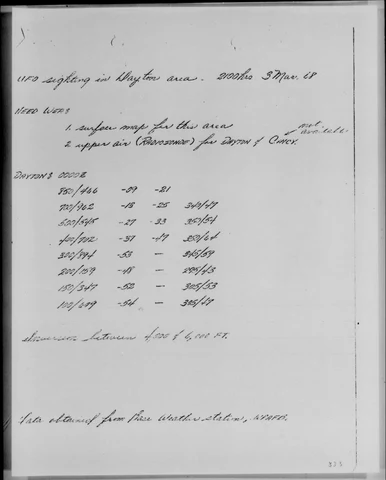 UFO sighting in Dayton area. 2100 hrs 3 Mar. 68
NEED WEA:
1. surface map for this area
2. upper air (RADIOSONDE) for DAYTON & CINCY. not available
DAYTON @ 0000Z
850/466 -09 -21
700/962 -18 -25 340/47
500/545 -27 -33 350/54
400/702 -37 -47 350/64
300/894 -53 —
200/159 -48 — 285/43
150/347 -52 — 305/53
100/609 -54 — 305/47
Inversion between 4,500 & 6,000 FT.
Data obtained from Base Weather station, WPAFB.